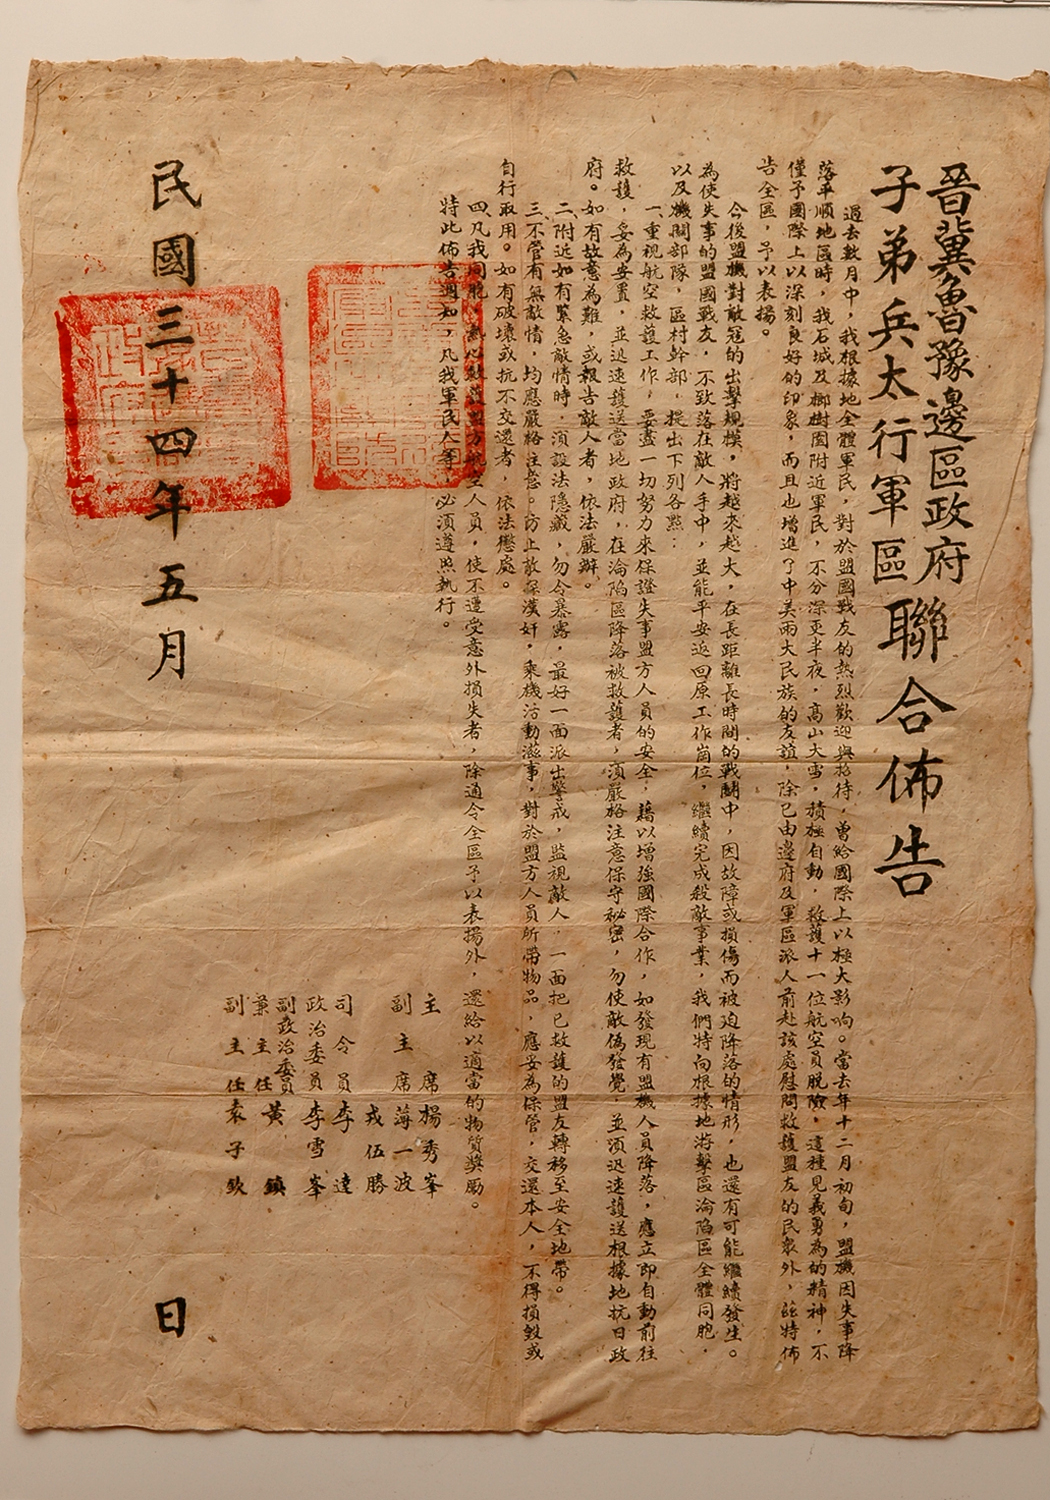 晉冀魯豫邊區政府
子弟兵太行軍區
聯合佈告
過去數月中，我根據地全體軍民，對於盟國戰友的熱烈歡迎與招待，曾給國際上以極大影响。當去年十二月初旬，盟機因失事降
落平順地區時，我石城及榔樹園附近軍民，不分深更半夜，高山大雪，積極自動，救護十一位航空員脫險，這種見義勇為的精神，不
僅予國際上以深刻良好的印象，而且也增進了中美兩大民族的友誼，除已由邊府及軍區派人前赴該處慰問救護盟友的民眾外，茲特佈
告全區，予以表揚。
今後盟機對敵寇的出擊規模，將越來越大，在長距離長時間的戰鬪中，因故障或損傷而被迫降落的情形，也還有可能繼續發生。
為使失事的盟國戰友，不致落在敵人手中，並能平安返回原工作崗位，繼續完成殺敵事業，我們特向根據地游擊區淪陷區全體同胞，
以及機關部隊，區村幹部，提出下列各點：
一、重視航空救護工作，要盡一切努力來保證失事盟方人員的安全，藉以增強國際合作，如發現有盟機人員降落，應立即自動前往
救護，妥為安置，並迅速護送當地政府，在淪陷區降落被救護者，須嚴格注意保守秘密，勿使敵偽發覺，並須迅速護送根據地抗日政
府。如有故意為難，或報告敵人者，依法嚴辦。
二、附近如有緊急敵情時，須設法隱藏，勿令暴露，最好一面派出警戒，監視敵人，一面把已救護的盟友轉移至安全地帶。
三、不管有無敵情，均應嚴格注意。防止敵探漢奸，乘機活動滋事，對於盟方人員所帶物品，應妥為保管，交還本人，不得損毀或
自行取用。如有破壞或抗不交還者，依法懲處。
四、凡我同胞，熱心救護盟方航空人員，使不遭受意外損失者，除通令全區予以表揚外，還給以適當的物質獎勵。
特此佈告週知，凡我軍民人等，必須遵照執行。
主席 楊秀峯
副主席 薄一波
戎伍勝
司令員 李達
政治委員 李雪峯
副政治委員
兼主任 黃鎮
副主任 袁子欽
民國三十四年五月 日